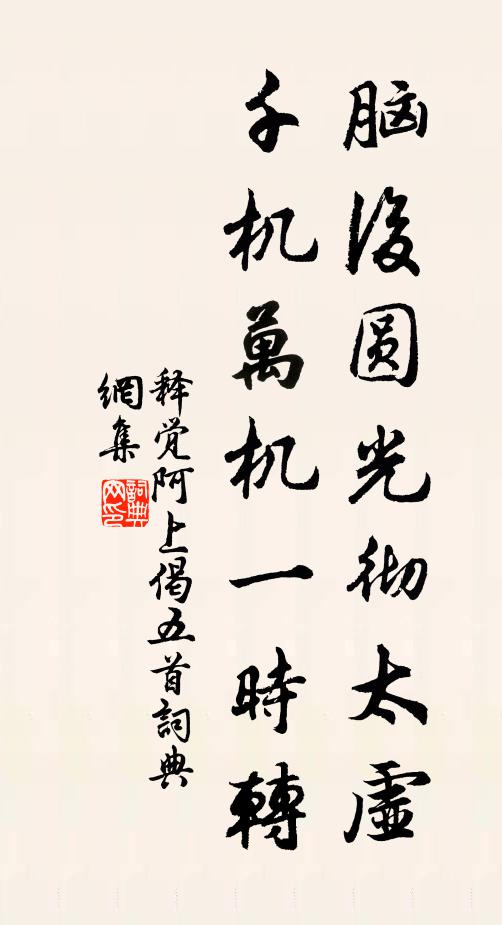 脑後圆光彻太虛
千机萬机一時轉
释觉阿上偈五首詞典
網集
詞典
网印